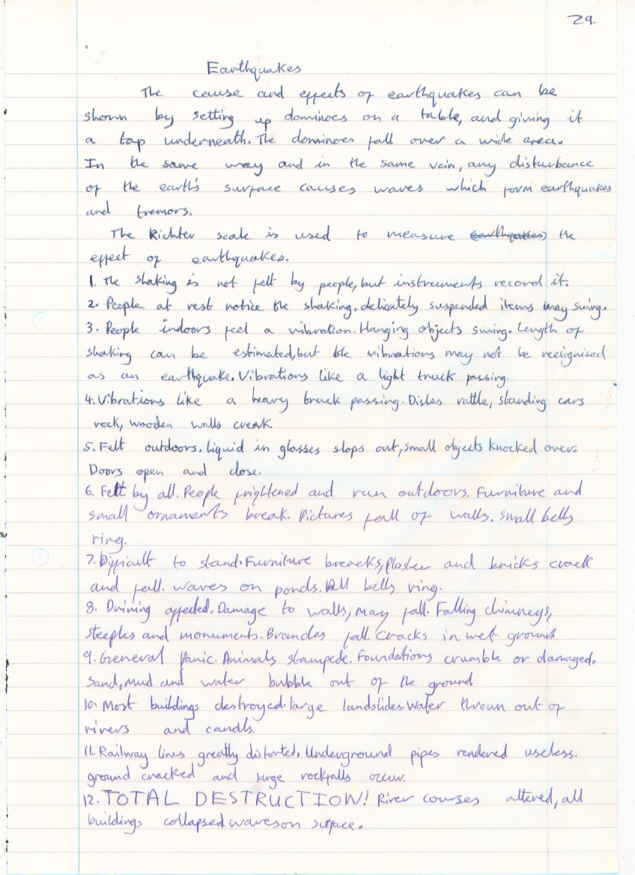 29.
Earthquakes
The cause and effects of earthquakes can be
shown by setting up dominoes on a table, and giving it
a tap underneath. The dominoes fall over a wide area.
In the same way and in the same vein, any disturbance
of the earth's surface causes waves which form earthquakes
and tremors.
The Richter scale is used to measure earthquakes the
effect of earthquakes.
1. The shaking is not felt by people, but instruments record it.
2. People at rest notice the shaking. delicately suspended items may swing.
3. People indoors feel a vibration. Hanging objects swing. Length of
shaking can be estimated, but the vibrations may not be recignised
as an earthquake. Vibrations like a light truck passing.
4. Vibrations like a heavy truck passing. Dishes rattle, standing cars
rock, wooden walls creak.
5. Felt outdoors. liquid in glasses slops out, small objects knocked over.
Doors open and close.
6. Felt by all. People frightened and run outdoors. Furniture and
small ornaments break. Pictures fall of walls. small bells
ring.
7. Difficult to stand. Furniture breacks, plaster and bricks crack
and fall. waves on ponds. Bell bells ring.
8. Driving affected. Damage to walls, may fall. Falling chimneys,
steeples and monuments. Branches fall. Cracks in wet ground
9. General Panic. Animals stampede. Foundations crumble or damaged.
Sand, mud and water bubble out of the ground
10. Most buildings destroyed. large landslides. Water thrown out of
rivers and canals.
11. Railway lines greatly distorted. Underground pipes rendered useless.
ground cracked and large rockfalls occur.
12. TOTAL DESTRUCTION! River courses altered, all
buildings collapsed waves on surface.